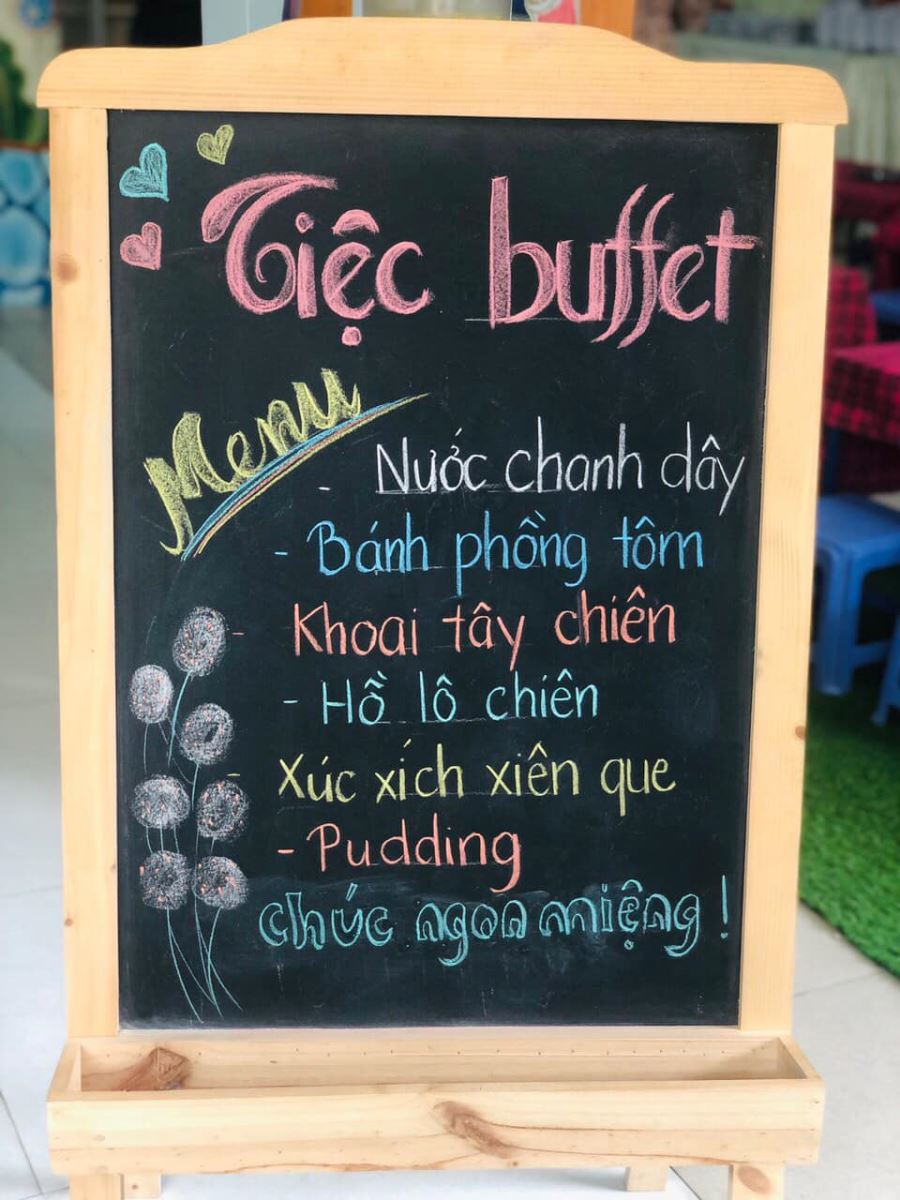 Tiệc buffet
Menu
- Nước chanh dây
- Bánh phồng tôm
- Khoai tây chiên
- Hồ lô chiên
- Xúc xích xiên que
- Pudding
chúc ngon miệng!